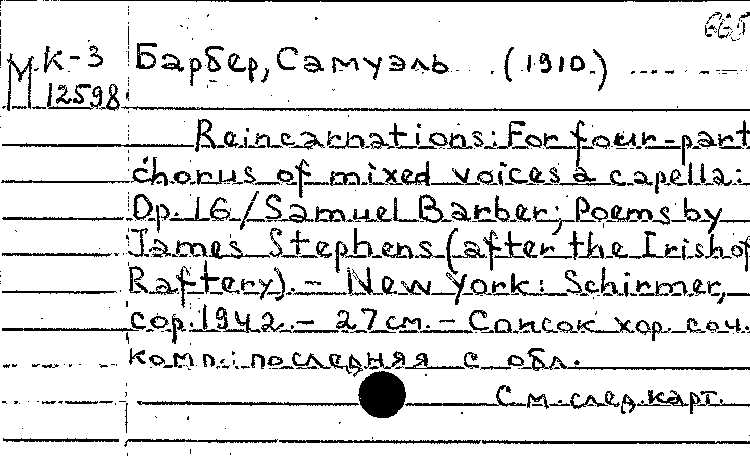 665
М К-3 Барбер, Самуэль (1910.)
12598
Reincarnations: For four-part
chorus of mixed voices a capella:
Op. 16/Samuel Barber; Poems by
James Stephens (after the Irish of
Raftery).- New York: Schirmer,
cop.1942.- 27см.- Список хор. соч.
комп.: последняя с обл.
См.след.карт.